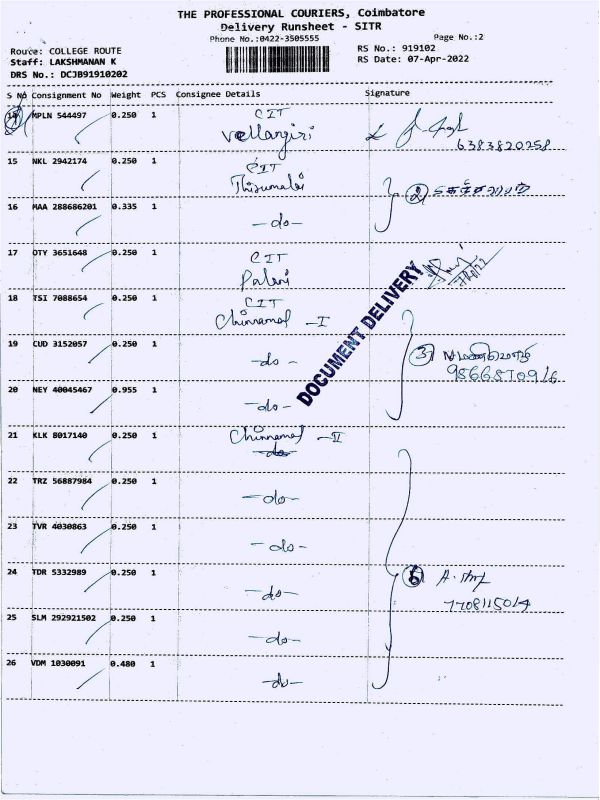 THE PROFESSIONAL COURIERS, Coimbatore
Delivery Runsheet - SITR
Phone No.:0422-3505555
Page No.:2
Route: COLLEGE ROUTE
RS No.: 919102
Staff: LAKSHMANAN K
RS Date: 07-Apr-2022
DRS No.: DCJB91910202
S No Consignment No Weight PCS Consignee Details Signature
14 MPLN 544497 0.250 1 CIT
Vellangiri
6383820258
15 NKL 2942174 0.250 1 CIT
Thirumalai
2
16 MAA 288686201 0.335 1
-do-
17 OTY 3651648 0.250 1 CIT
Palani
18 TSI 7088654 0.250 1 CIT
Chinnamal -I
DOCUMENT DELIVERY
19 CUD 3152057 0.250 1
-do-
3
9566870916
20 NEY 40045467 0.955 1
-do-
21 KLK 8017140 0.250 1 Chinnamal -II
do
22 TRZ 56887984 0.250 1
-do-
23 TVR 4030863 0.250 1
-do-
24 TDR 5332989 0.250 1
-do-
6
7708115014
25 SLM 292921502 0.250 1
-do-
26 VDM 1030091 0.480 1
-do-